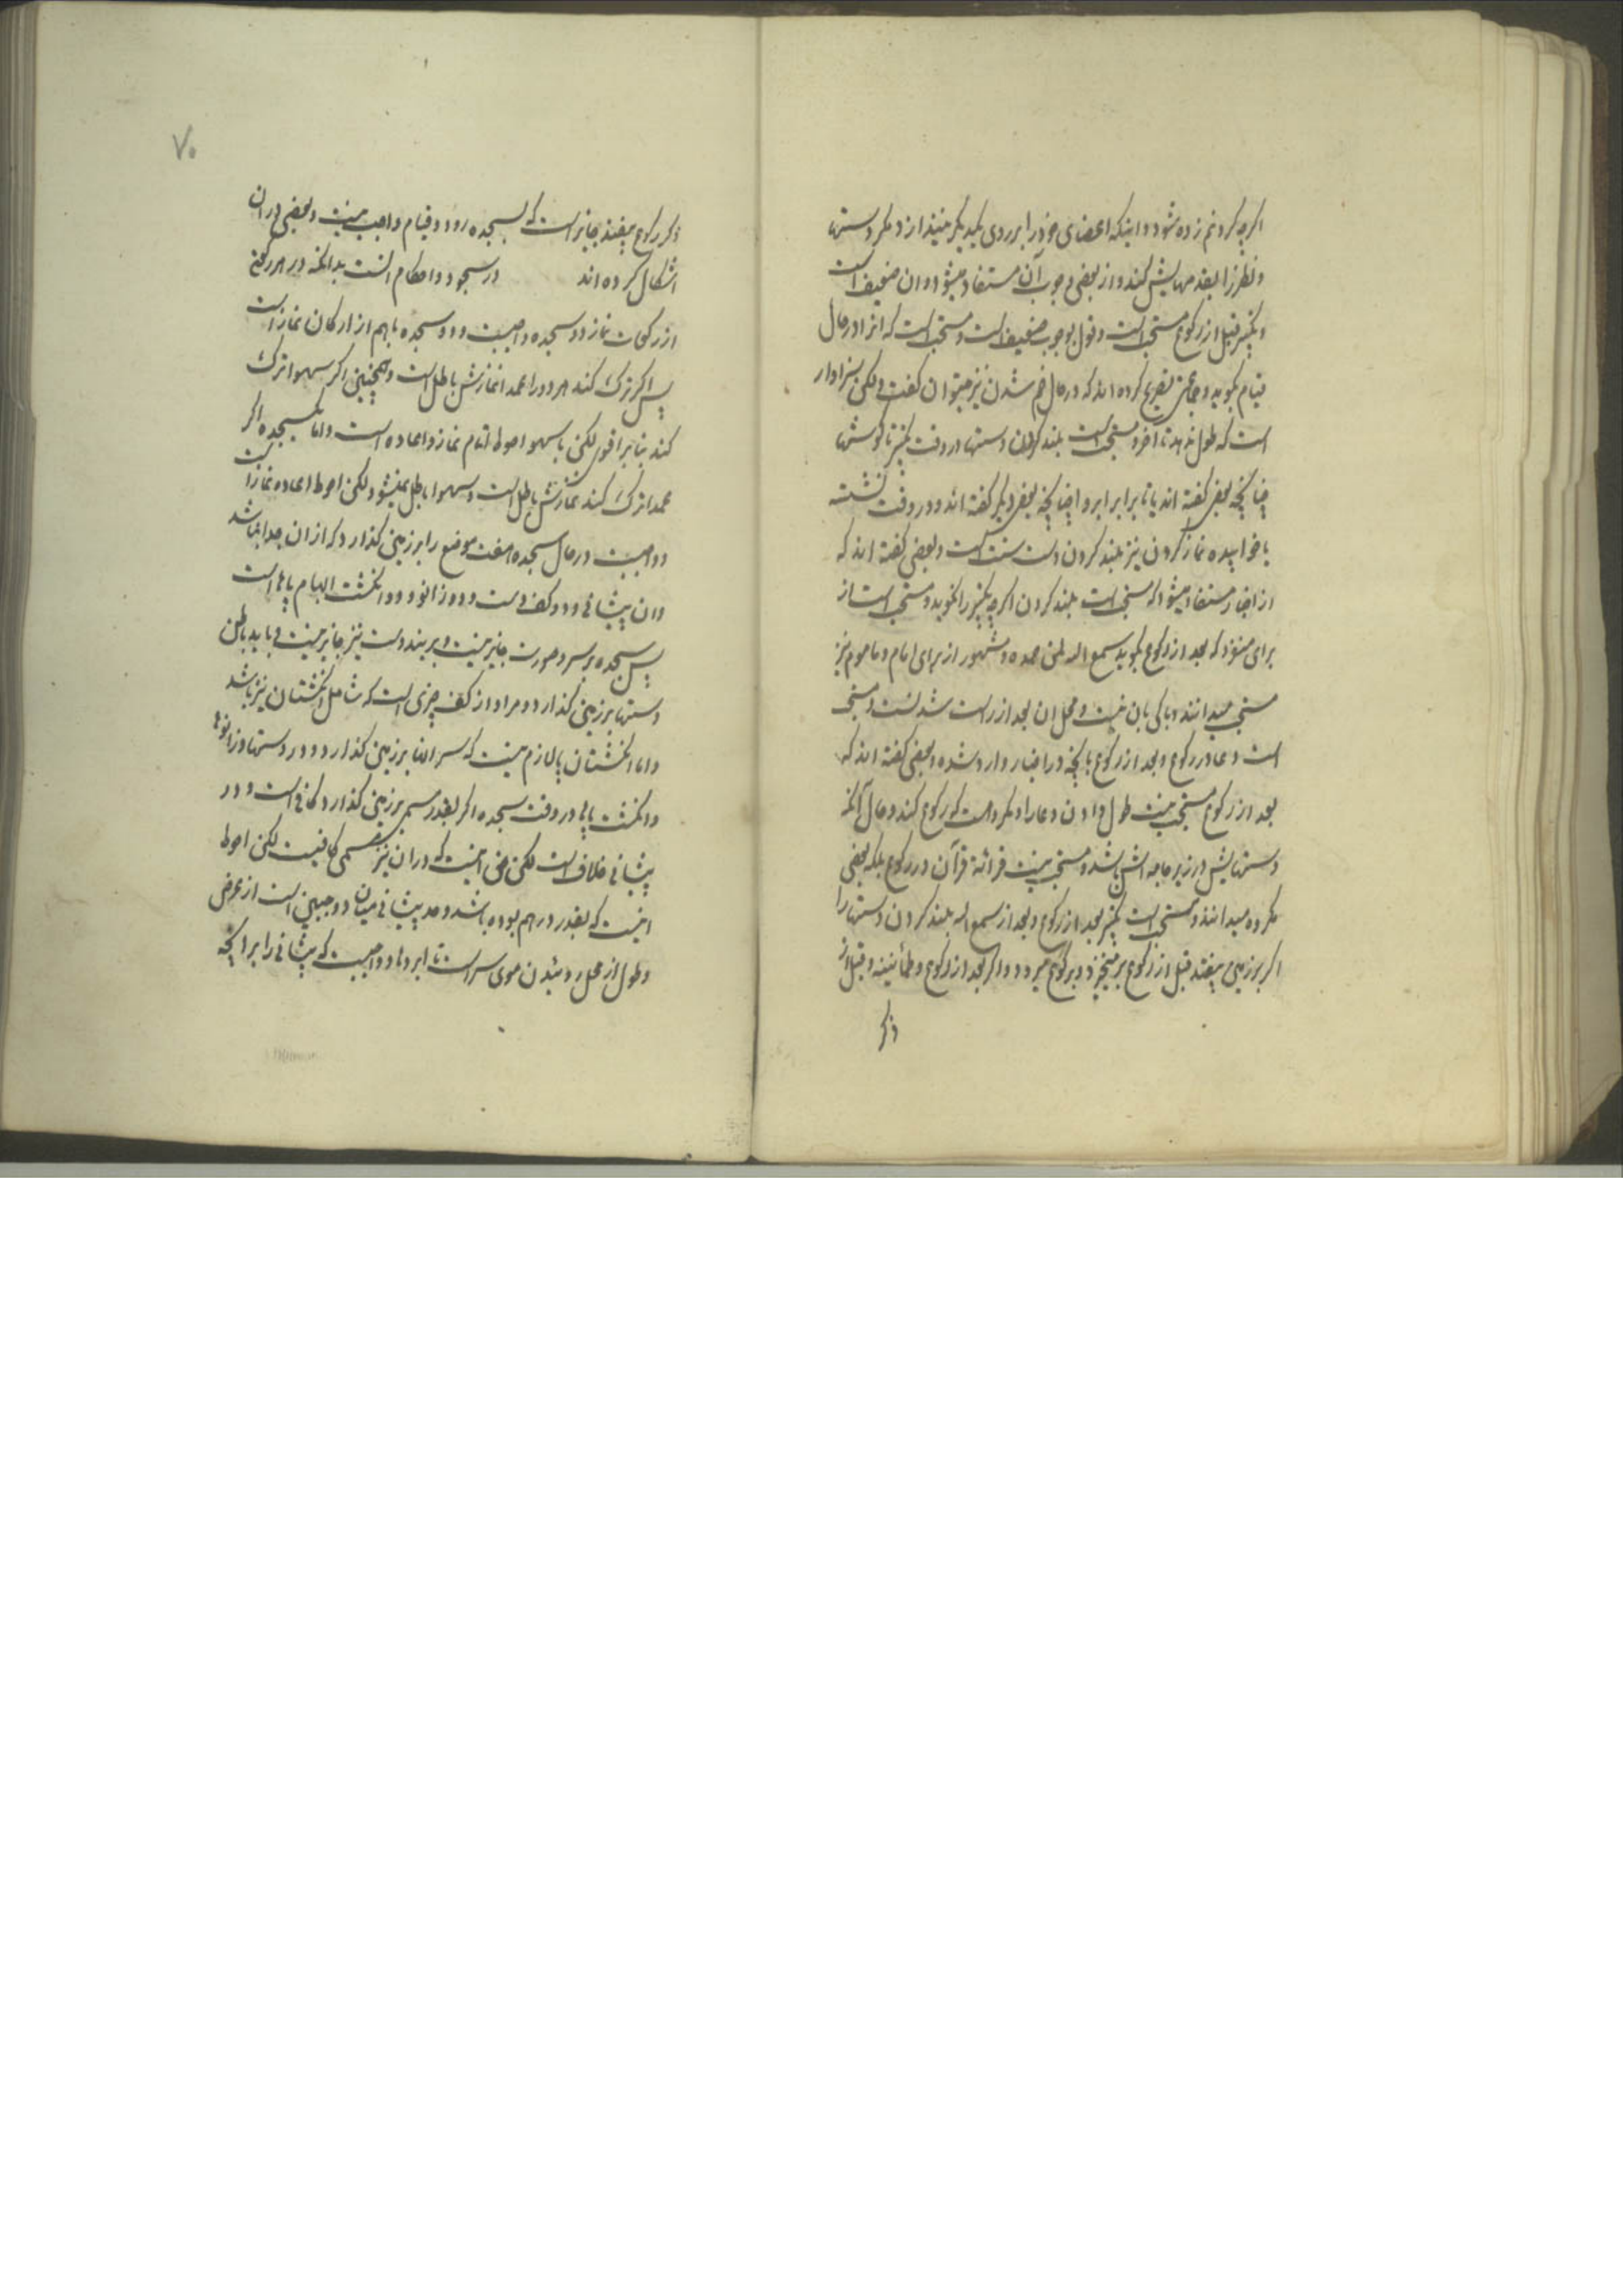 اگرچه گردنم زده شود و اینکه اعضای خود را بر روی یکدیگر نیندازد مگر دستها
و نظر را بقدمهایش کند و از بعضی وجوب آن مستفاد میشود و آن ضعیف است
و تکبیر قبل از رکوع مستحب است و قول بوجوب ضعیف است و مستحب است که انرا در حال
قیام بگوید و جماعتی تصریح کرده اند که در حال خم شدن نیز میتوان گفت ولکن سزاوار
است که طول ندهد تا آخر و مستحب است بلند کردن دستها در وقت تکبیر تا گوشها
چنانچه بعضی گفته اند یا تا برابر رو چنانچه بعضی دیگر گفته اند و در وقت نشسته
یا خوابیده نماز کردن نیز بلند کردن دست سنت است و بعضی گفته اند که
از اخبار مستفاد میشود که مستحب است بلند کردن اگرچه تکبیر را نگوید و مستحب است از
برای منفرد که بعد از رکوع بگوید سمع الله لمن حمده و مشهور از برای امام و ماموم نیز
مستحب میدانند و باکی بان نیست و محل ان بعد از راست شدنست و مستحب
است دعا در رکوع و بعد از رکوع بانچه در اخبار وارد شده و بعضی گفته اند که
بعد از رکوع مستحب نیست طول دادن دعا را و مکروه است که رکوع کند و حال آنکه
دستهایش در زیر جامه اش باشد و مستحب نیست قرائة قرآن در رکوع بلکه بعضی
مکروه میدانند و مستحب است تکبیر بعد از رکوع و بعد از سمع الله بلند کردن دستها را
اگر بر زمین بیفتد قبل از رکوع برمیخیزد و برکوع میرود و اگر بعد از رکوع و طمأنینه و قبل از
ذکر
۷۰
ذکر رکوع بیفتد جایز است که بسجده رود و قیام واجب نیست و بعضی در ان
اشکال کرده اند در سجود و احکام انست بدانکه در هر رکعتی
از رکعات نماز دو سجده واجبست و دو سجده باهم از ارکان نماز است
پس اگر ترک کند هر دو را عمدا نمازش باطل است و همچنین اگر سهوا ترک
کند بنا بر اقوی لکن با سهو احوط اتمام نماز و اعاده است و اما یکسجده اگر
عمدا ترک کند نمازش باطل است و سهوا باطل نمیشود لکن احوط اعاده نماز است
و واجبست در حال سجده هفت موضع را بر زمین گذارد که از ان جدا نباشد
و ان پیشانی و دو کف دست و دو زانو و دو انگشت ابهام پاها است
پس سجده بر سر و صورت جایز نیست و بر بند دست نیز جایز نیست و باید باطن
دستها بر زمین گذارد و مراد از کف چیزی است که شامل انگشتان نیز باشد
و اما انگشتان پا لازم نیست که سر انها بر زمین گذارد و در دستها و زانوها
و انگشت پاها در وقت سجده اگر بقدر مسمی بر زمین گذارد کافی است و در
پیشانی خلاف است لکن حق اینست که در ان نیز مسمی کافیست لکن احوط
اینست که بقدر درهم بوده باشد و حد پیشانی میان دو جبین است از عرض
و طول از محل روئیدن موی سر است تا ابروها و واجبست که پیشانی را بر انچه